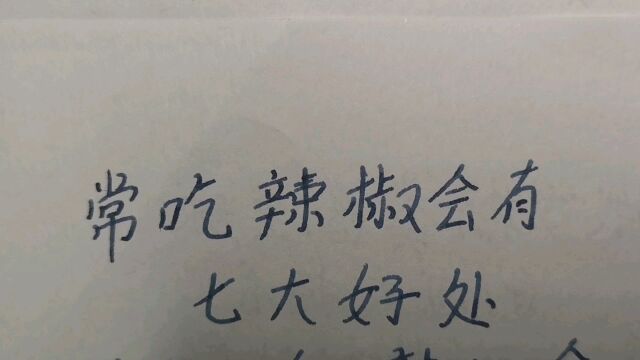 常吃辣椒会有
七大好处